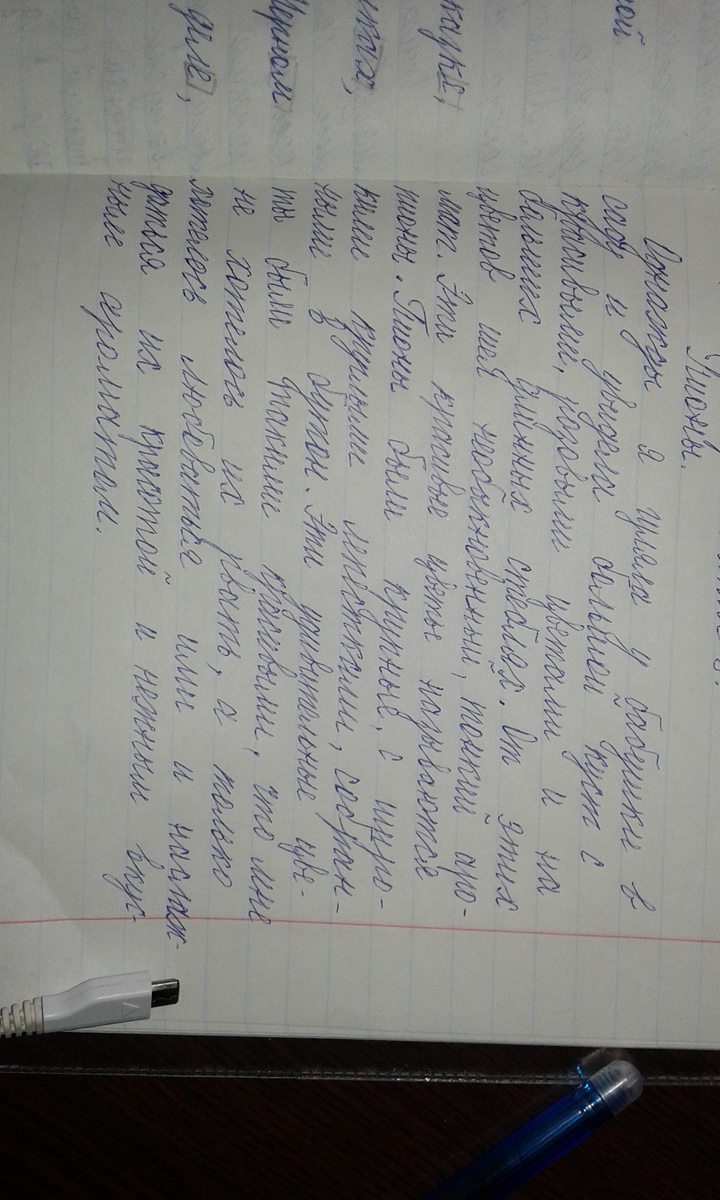 Пионы.
Однажды я гуляла у бабушки в
саду и увидела большой куст с
красивыми, розовыми цветами и на
больших длинных стеблях. От этих
цветов шёл необыкновенный, тонкий аро-
мат. Эти красивые цветы называются
пионы. Пионы были крупные, с широ-
кими крупными лепестками, собран-
ными в бутон. Эти удивительные цве-
ты были такими красивыми, что мне
не хотелось их рвать, а только
хотелось любоваться ими и наслаж-
даться их красотой и нежным вкус-
ным ароматом.